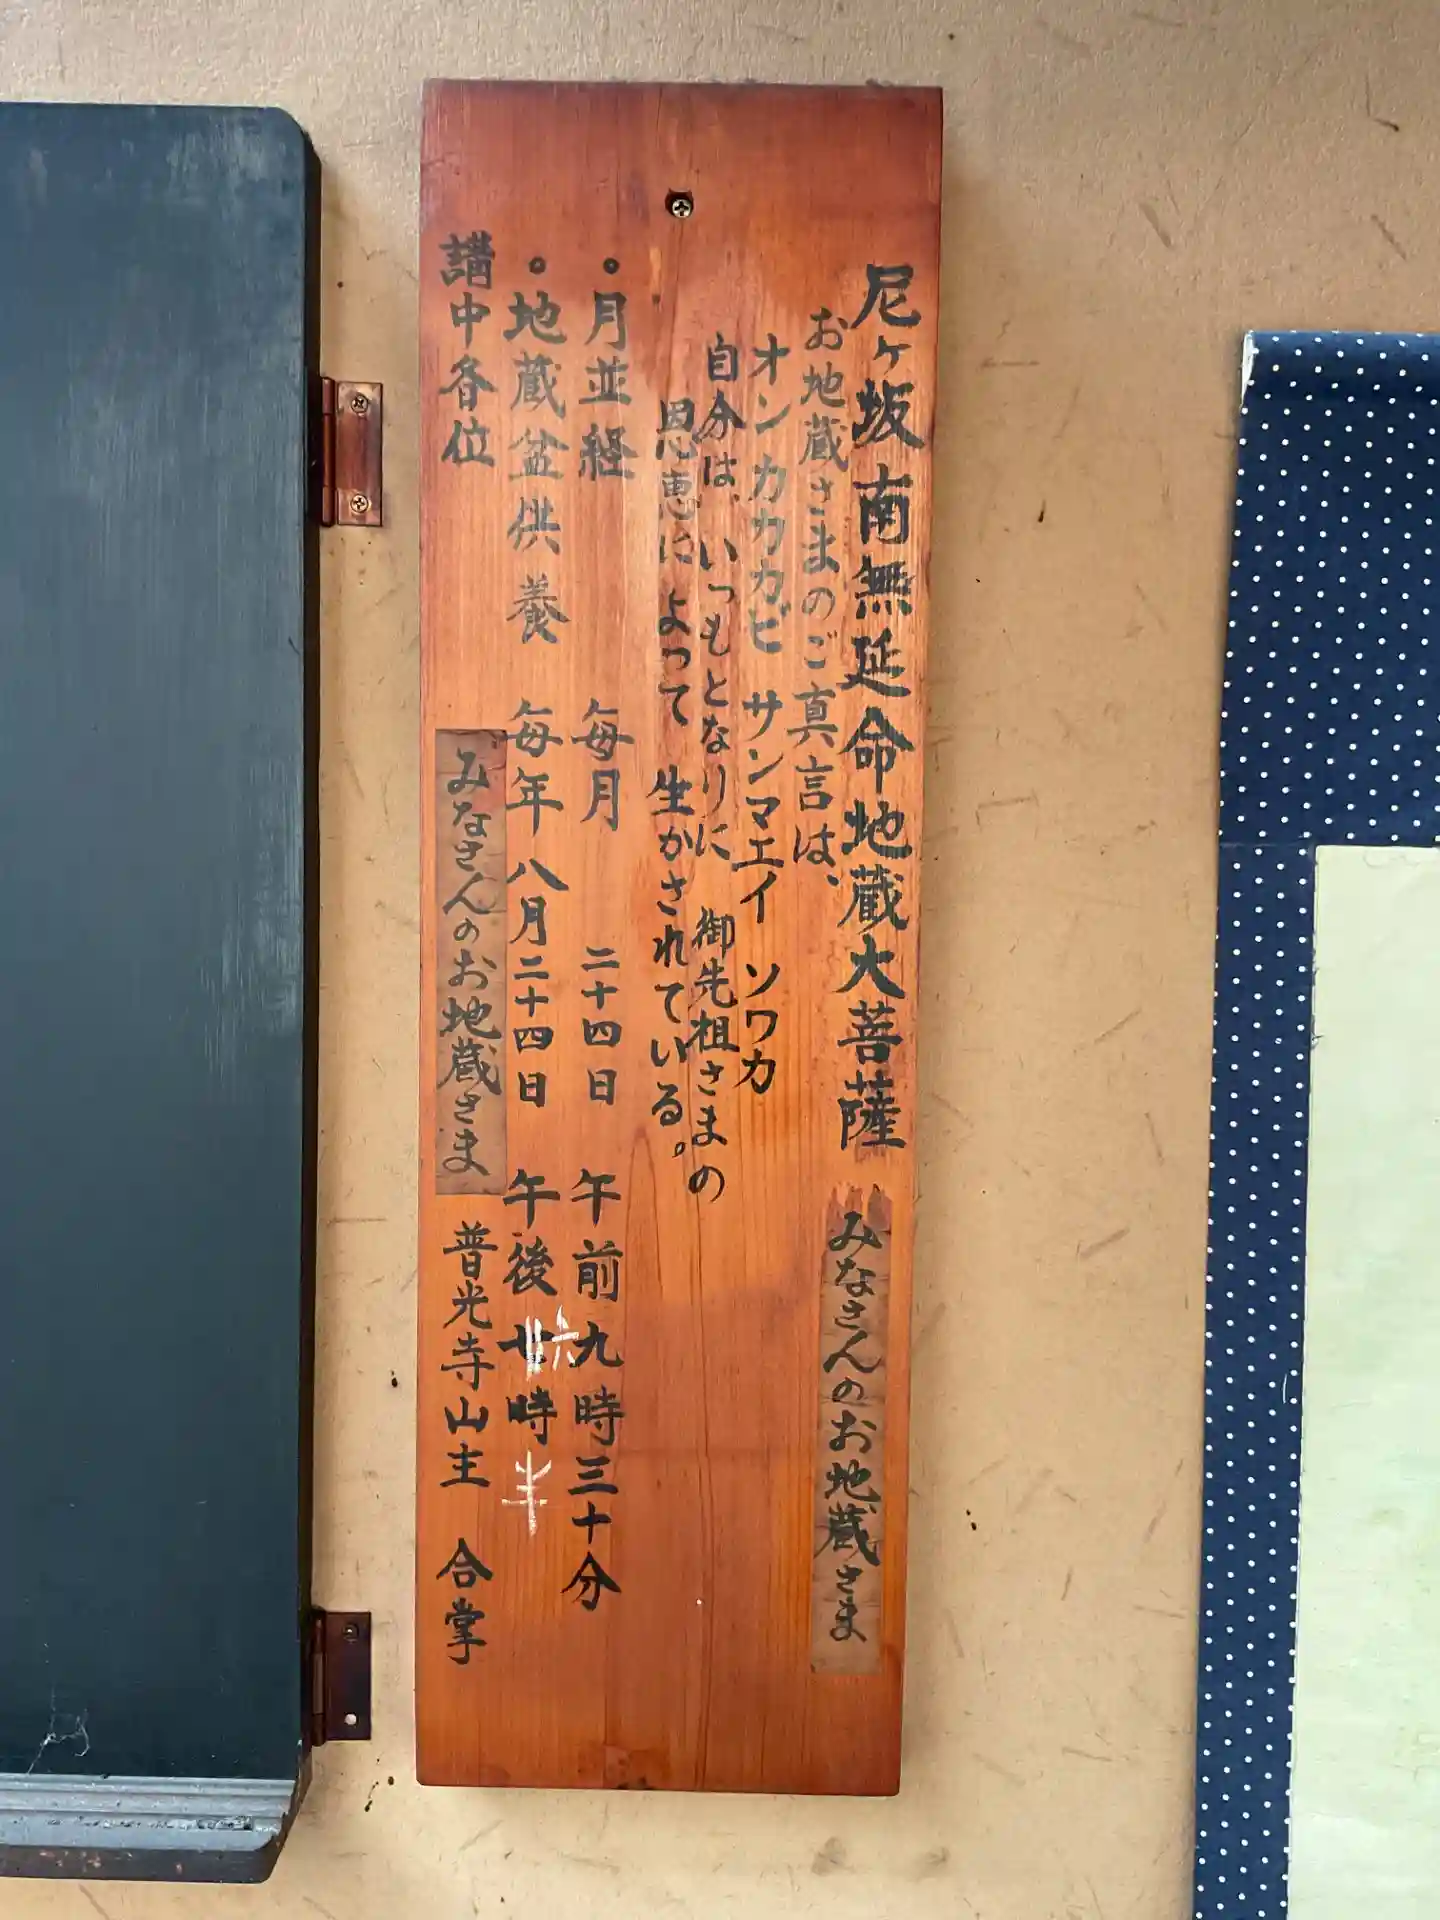 尼ヶ坂南無延命地蔵大菩薩 みなさんのお地蔵さま
お地蔵さまのご真言は、
オンカカカビ サンマエイ ソワカ
自分は、いつもとなりに 御先祖さまの
恩恵に よって 生かされている。
・月並経 毎月 二十四日 午前九時三十分
・地蔵盆供養 毎年 八月二十四日 午後六時半
講中各位 みなさんのお地蔵さま 普光寺山主 合掌